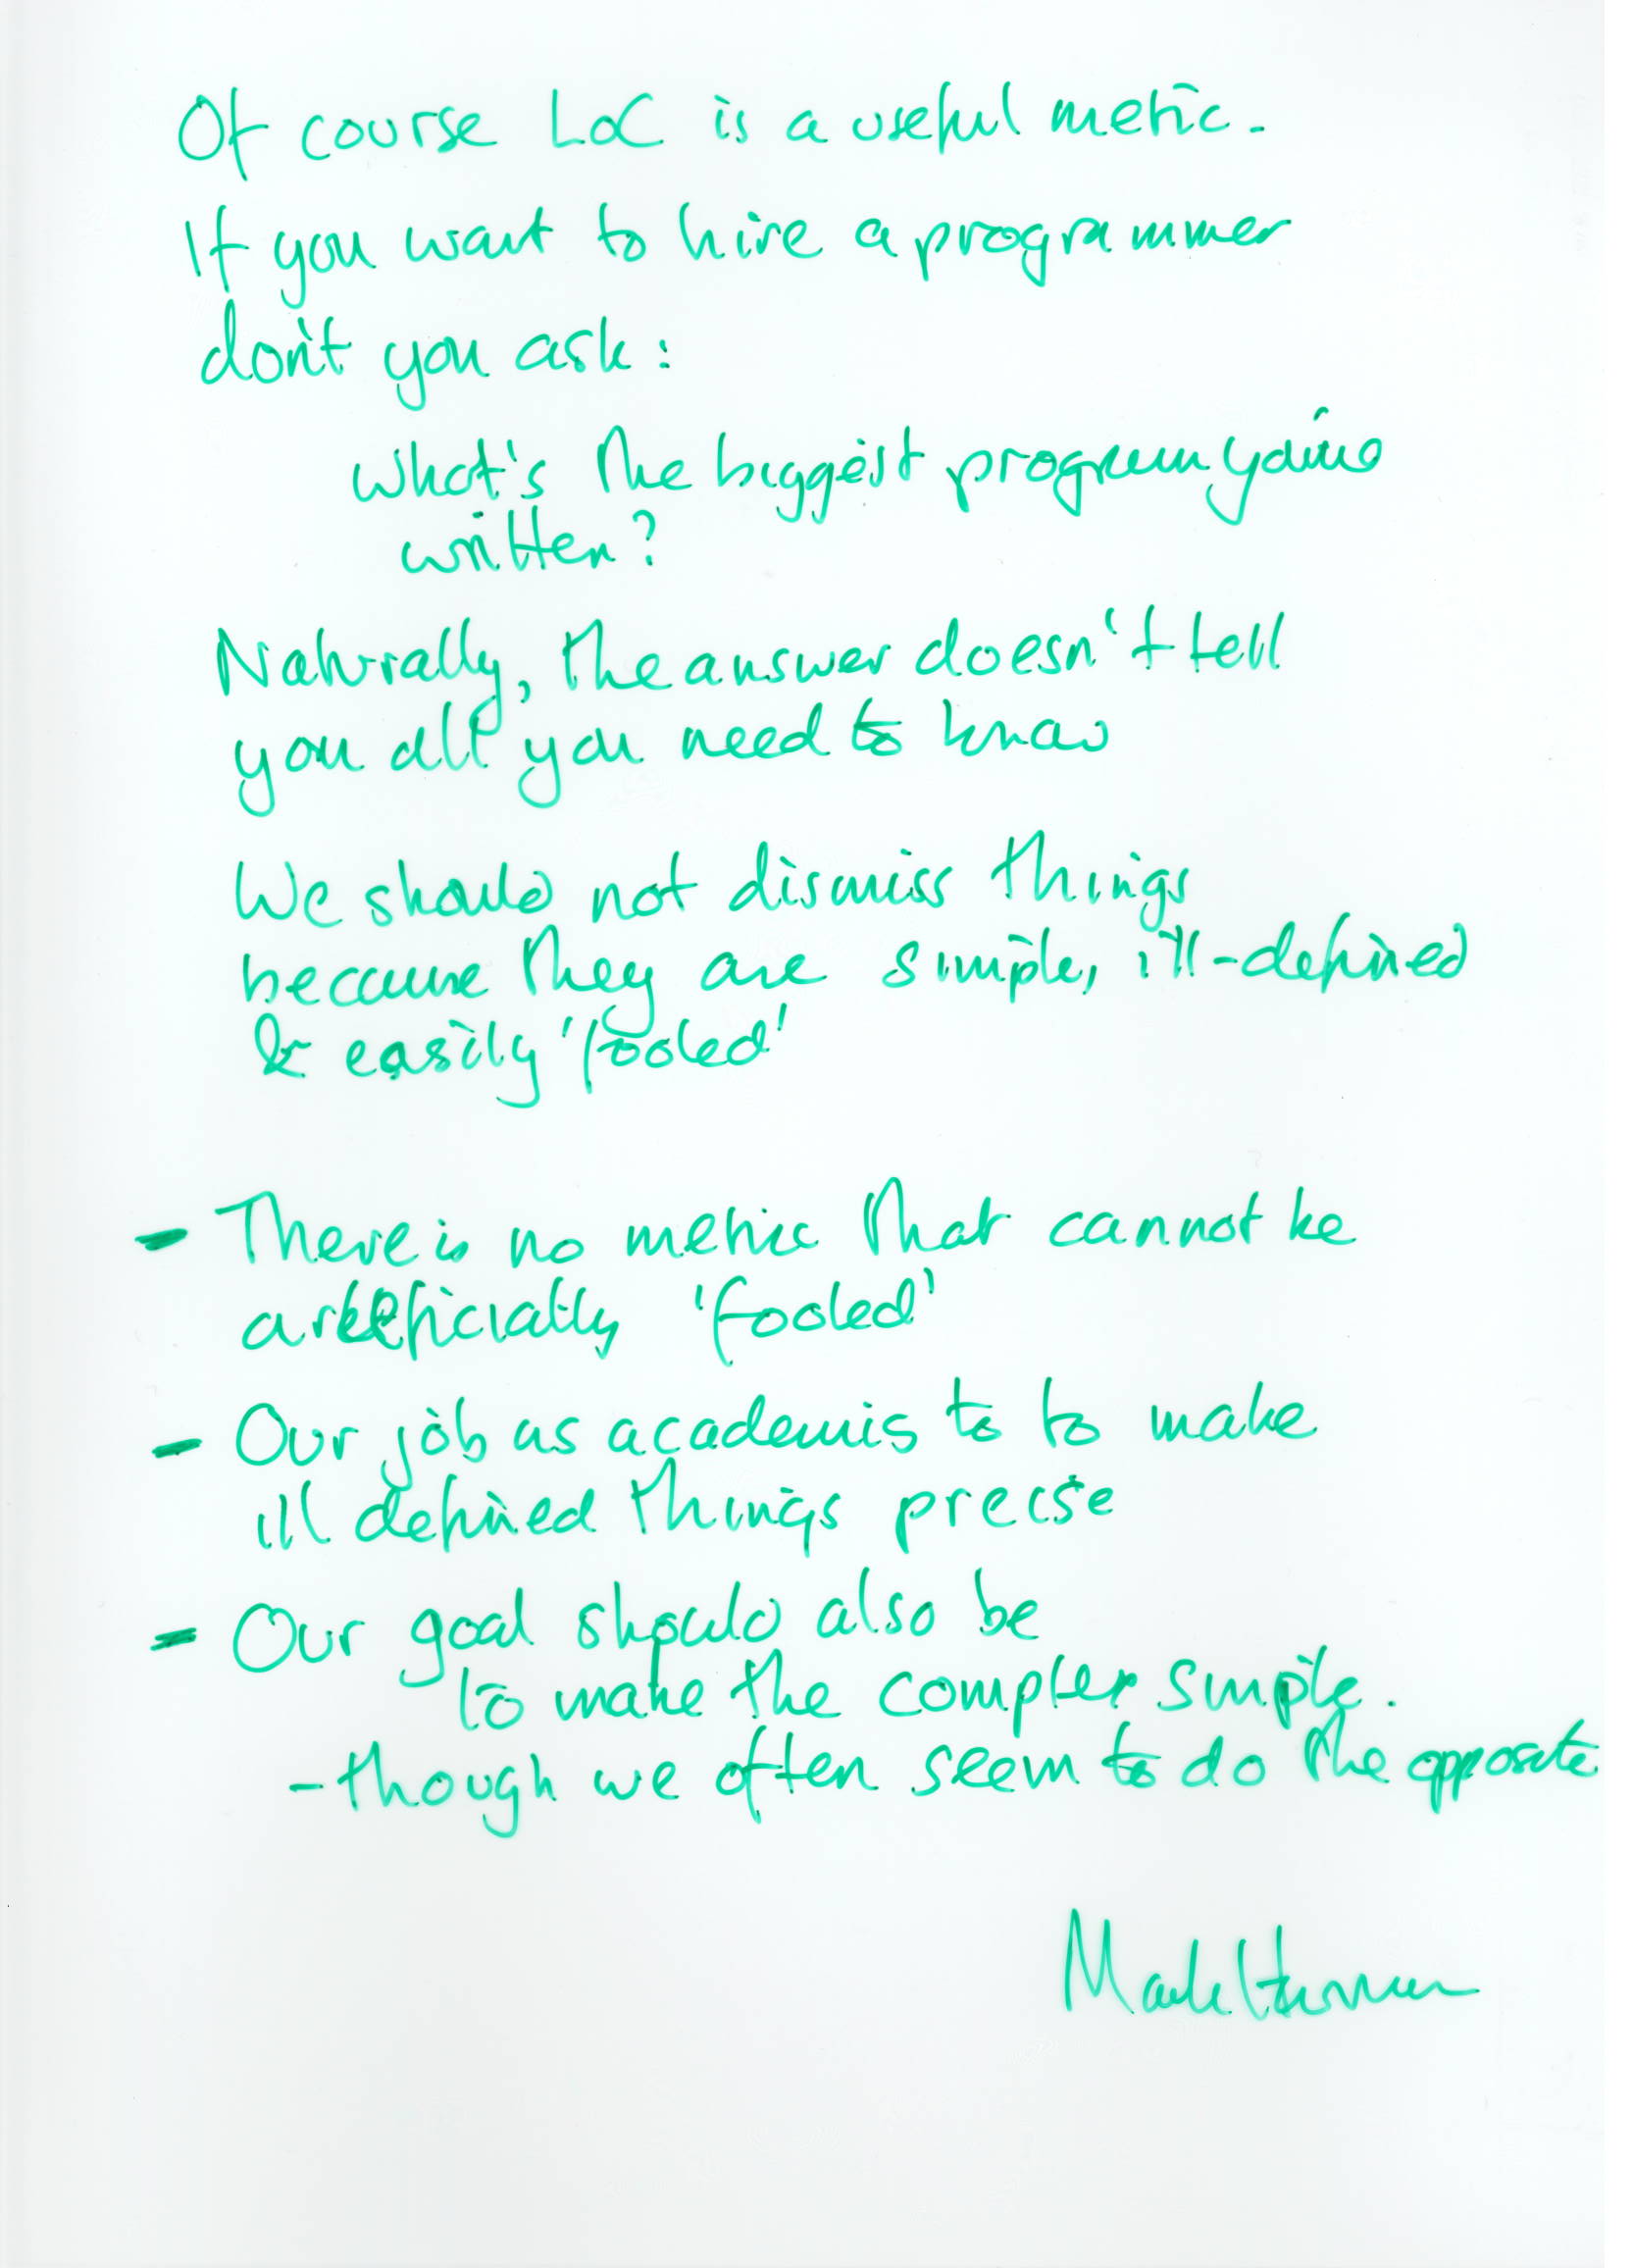 Of course LoC is a useful metric.
If you want to hire a programmer
don't you ask:
What's the biggest program you've
written?
Naturally, the answer doesn't tell
you all you need to know
We should not dismiss things
because they are simple, ill-defined
& easily 'fooled'
- There is no metric that cannot be
artificially 'fooled'
- Our job as academis to to make
ill defined things precise
- Our goal should also be
to make the complex simple.
- though we often seem to do the opposite
Mark Harman